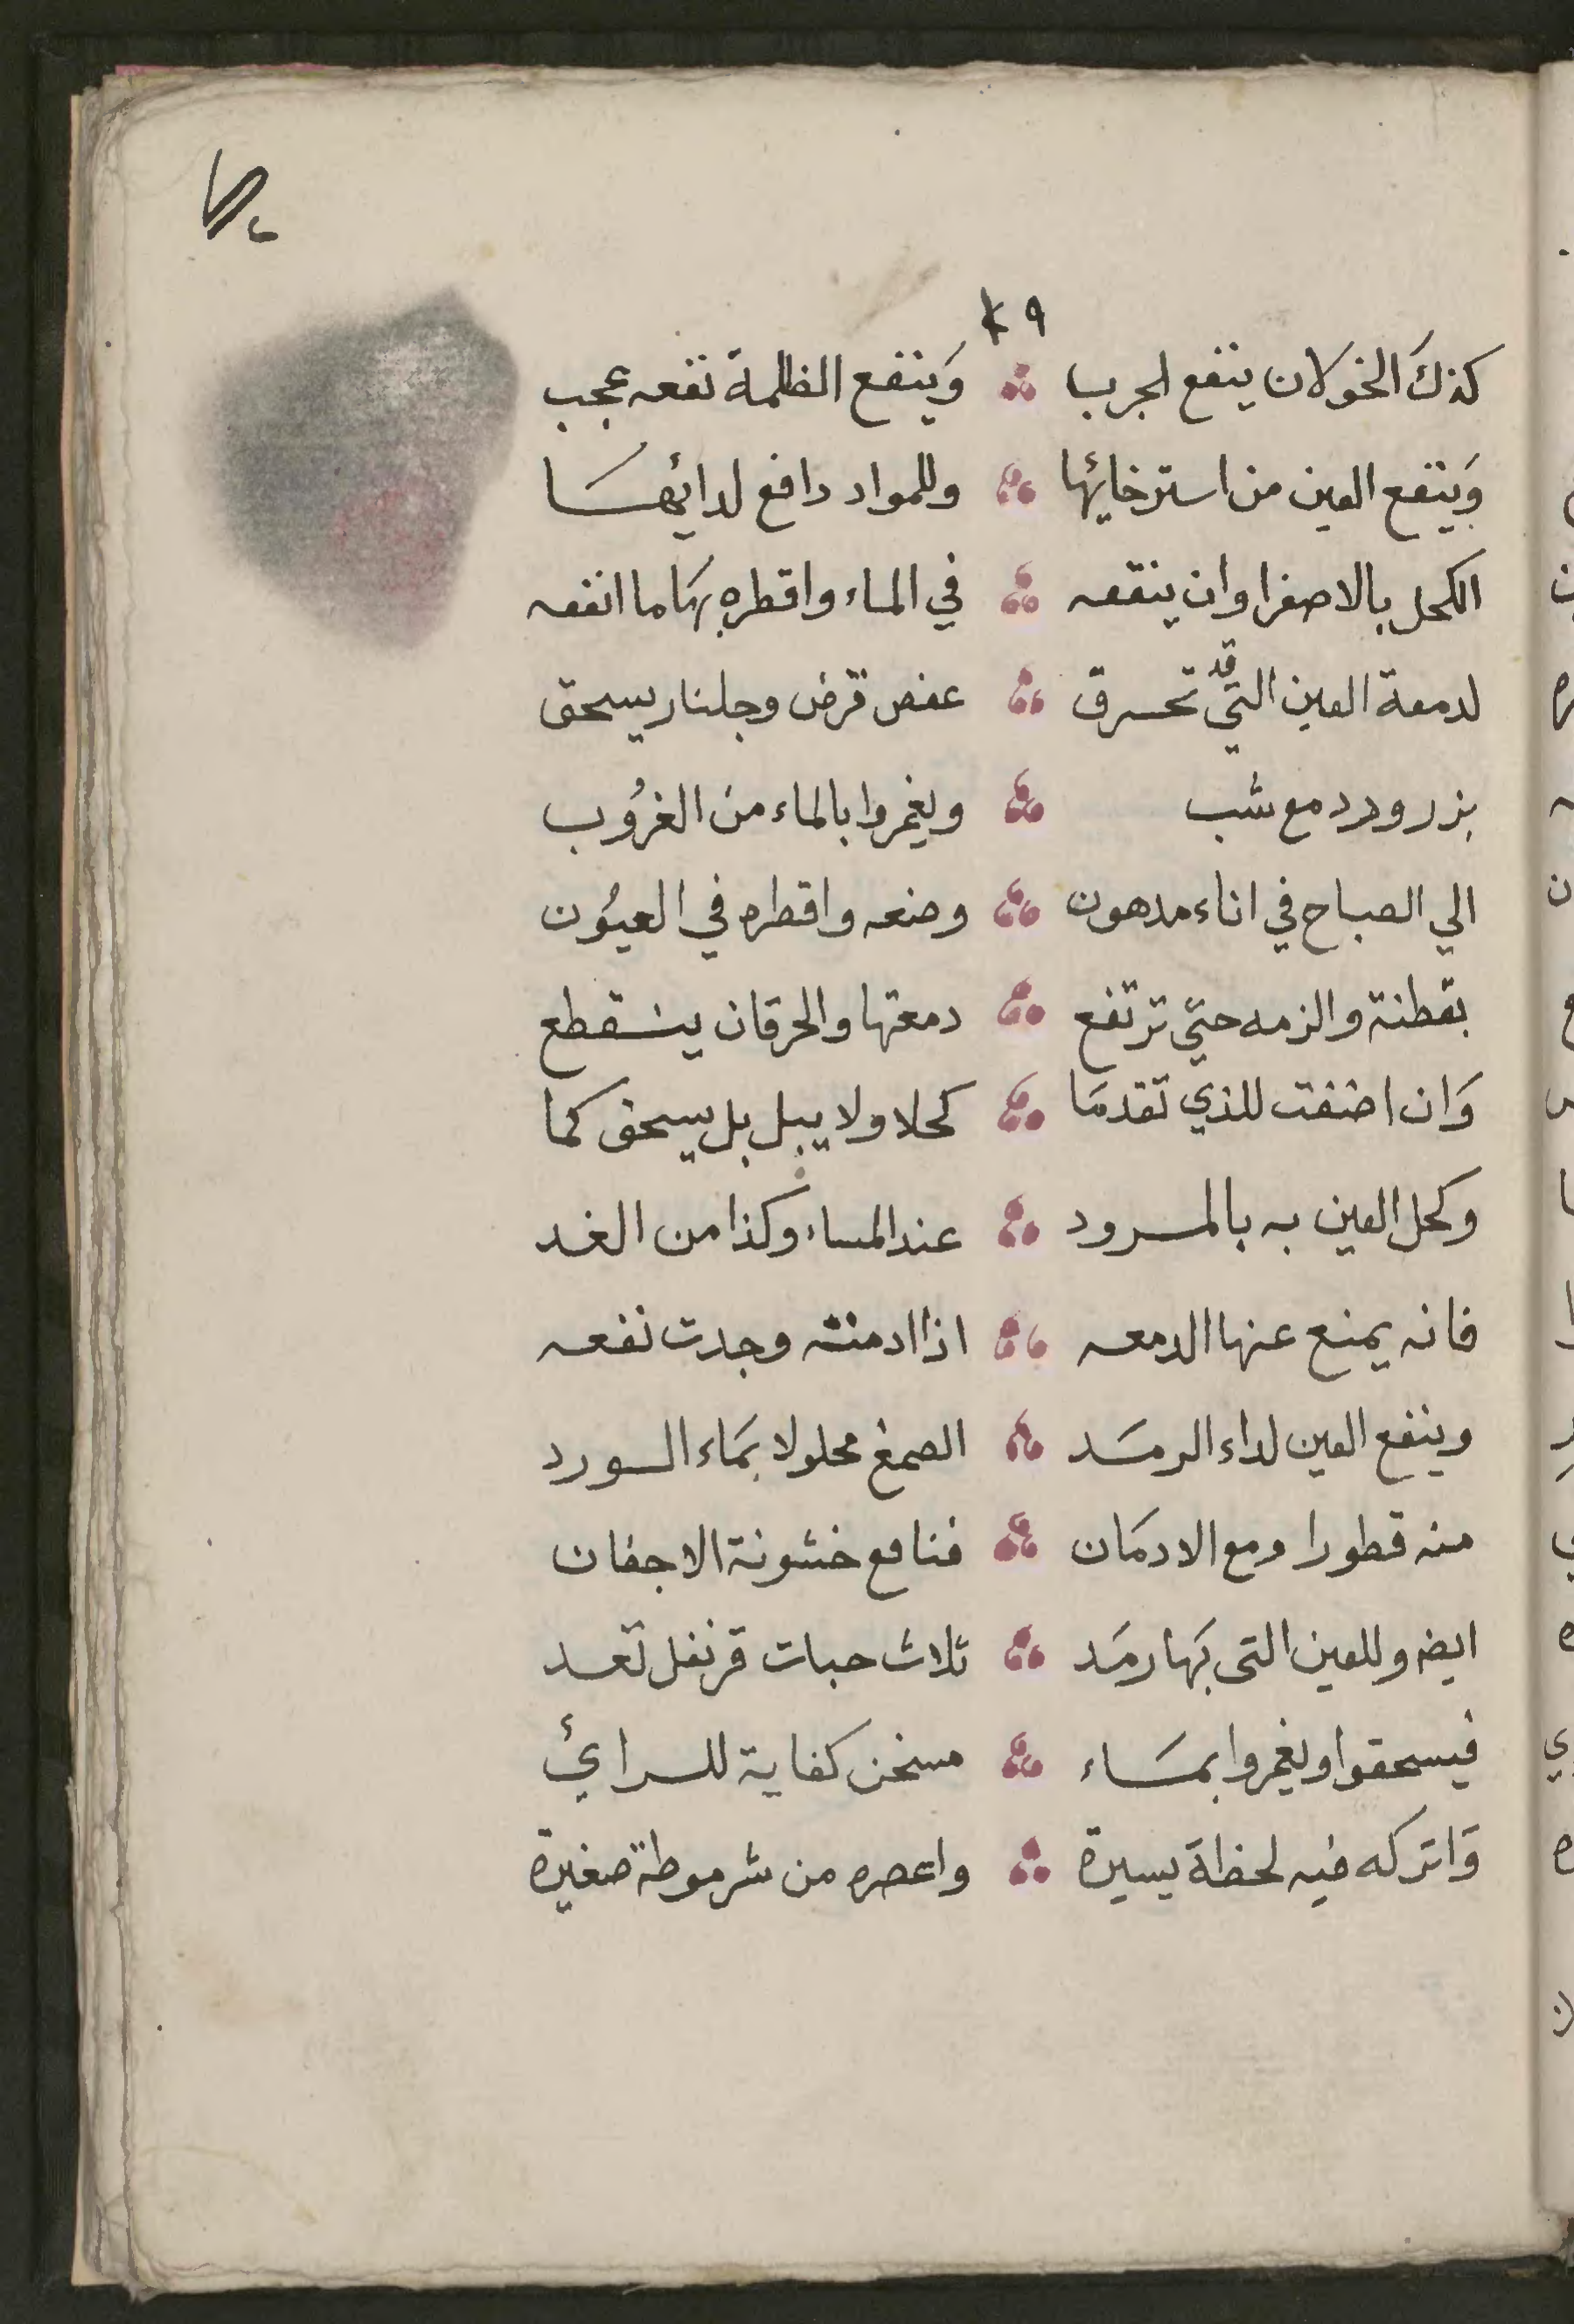 ٤٩
كذلك الخولان ينفع لجرب وَينفع الظلمة نفعه عجب
وَينفع العين من استرخائها وللمواد دافع لدائهسَا
الكحل بالاصفر اوان ينقعه في الماء واقطره بهَا ما انفعه
لدمعة العين التي قد تحرق عفص قرض وجلنار يسحق
بزر ورد مع شب ويغمروا بالماء من الغرُوب
الي الصباح في اناء مدهون وضعه واقطره في العيُون
بقطنة والزمه حتي ترتفع دمعتها والحرقان ينقطع
وَان اضفت للذي تقدمَا كحلا ولا يبل بل يسحق كما
وكحل العين به بالمرود عند المساء وكذا من الغد
فانه يمنع عنها الدمعه اذا ادمنته وجدت نفعه
وينفع العين لداء الرمسَد الصمغ محلولا بمَاء الورد
منه قطورا ومع الادمَان فنافع خشونة الاجفان
ايضه وللعين التى بهَا رمَد ثلاث حبات قرنفل تعد
فيسحقوا ويغمروا بمسَاء مسخن كفاية للرائي
وَاتركه فيه لحظة يسيرة واعصره من شرموطة صغيرة